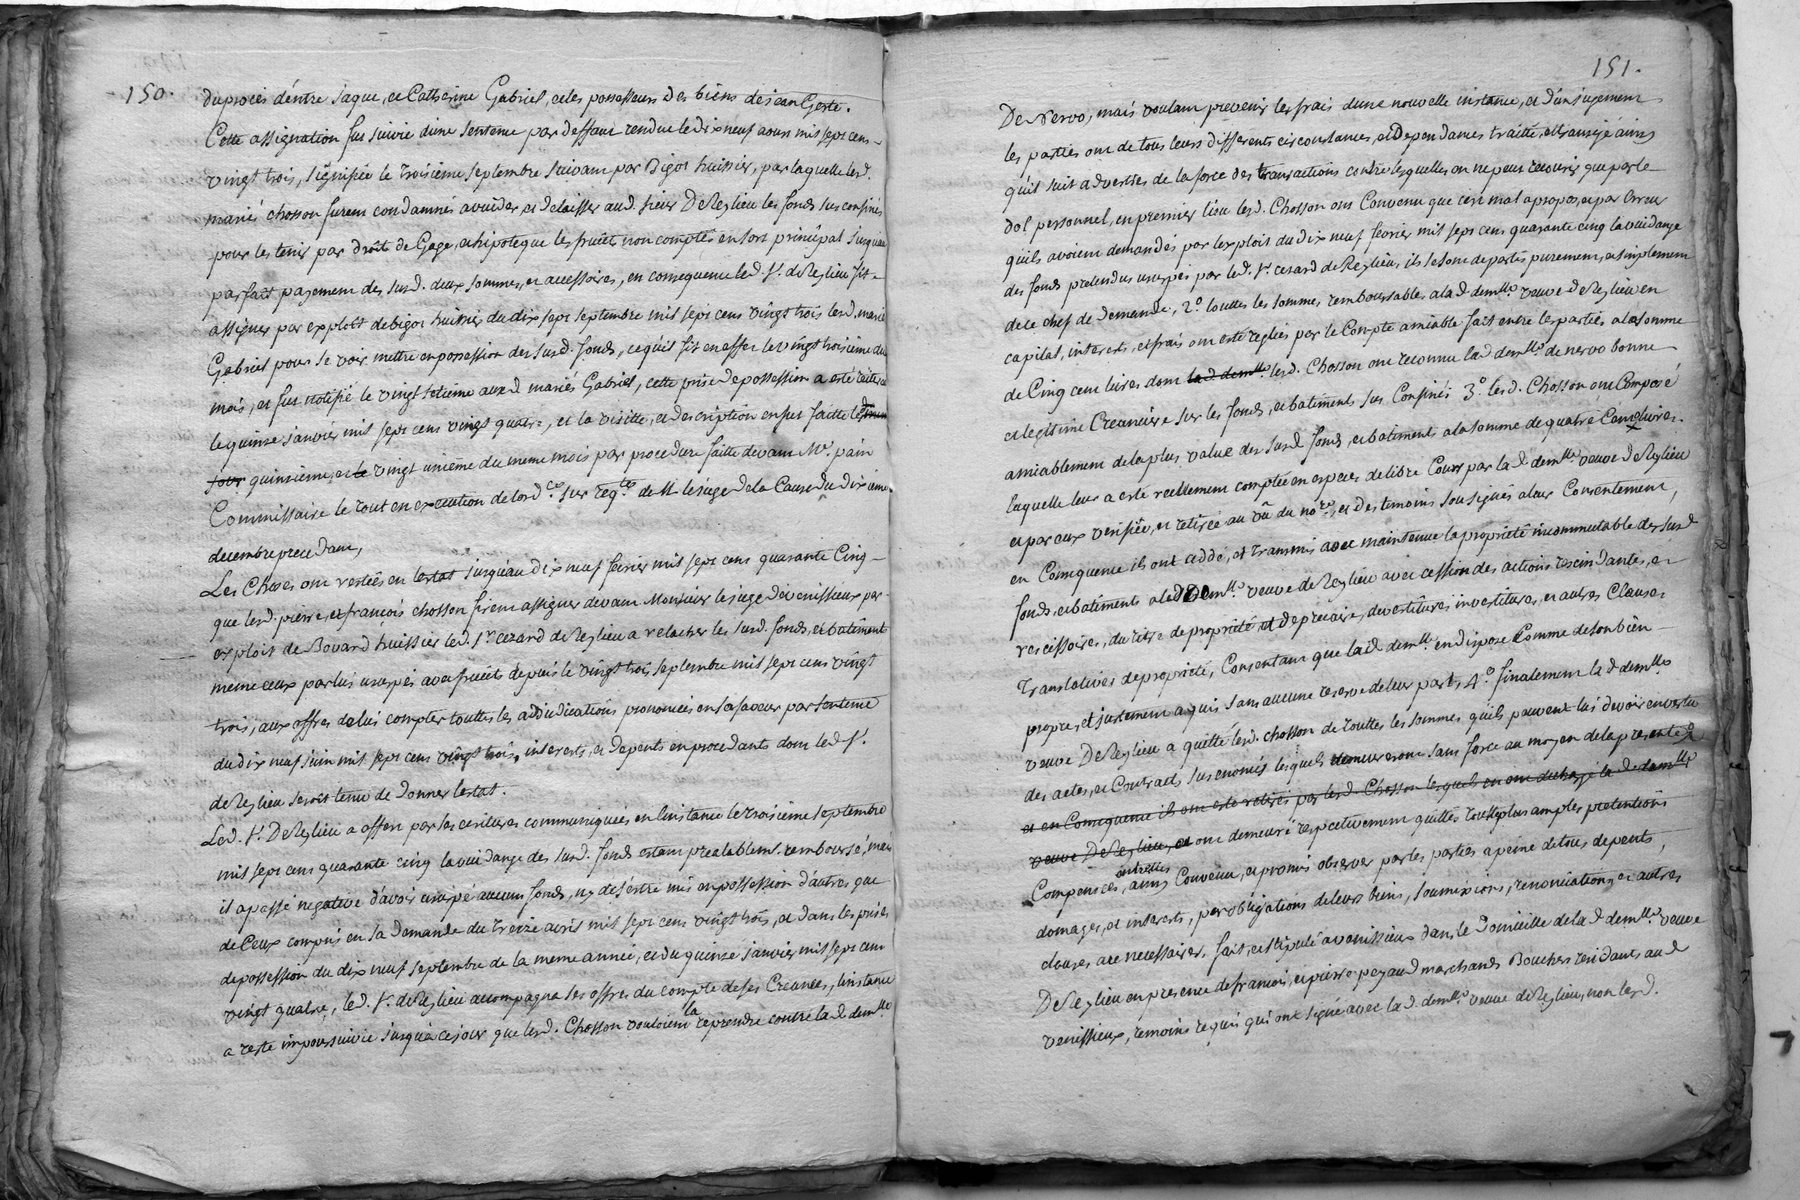 150.
du procès d'entre Jaque, et Catherine Gabriel, et les possesseurs des biens de jean Geste.
Cette assignation fut suivie d'une sentence par deffaut rendue le dix neuf aoust mil sept cens
vingt trois, signifiée le troisième septembre suivant par Bigot huissier, par laquelle lesd.
mariés chosson furent condamnés a vuider, et delaisser aud. sieur De Reglieu les fonds sus confinés
pour les tenir par droit de Gage, et hipoteque les fruits non comptés en sort principal jusquau
parfait payement des susd. deux sommes, et accessoires, en consequence led. Sr. de Reglieu fit
assigner par exploit de bigot huissier du dix sept septembre mil sept cens vingt trois lesd. mariés
Gabriel pour se voir mettre en possession des susd. fonds, ce qu'il fit en effet le vingt troisieme du
mois, et fut notifié le vingt setieme auxd. mariés Gabriel, cette prise de possession a esté reiterée
le quinze janvier mil sept cens vingt quatre, et la visitte, et description en fut faitte led.
jour quinzieme, et le vingt unieme du meme mois par procedure faitte devant Me. pain
Commissaire le tout en execution de lord.ce sur reqte de M le juge de la Cause du dixieme
decembre precedant,
Les Choses ont restées en lestat jusquau dix neuf fevrier mil sept cens quarante Cinq
que lesd. pierre, et françois chosson firent assigner devant Monsieur le juge de venissieux par
exploit de Bovard huissier led. Sr. cezard de Reglieu a relacher les susd. fonds, et batiment
meme ceux par lui usurpés avec fruits depuis le vingt trois septembre mil sept cens vingt
trois, aux offres de lui compter touttes les adjudications prononcées en sa faveur par sentence
du dix neuf juin mil sept cens vingt trois, interests, et depents en procedants dont led. Sr.
de Reglieu seroit tenu de donner lestat.
Led. Sr. De Reglieu a offert par ses ecritures communiquées en linstance le troisieme septembre
mil sept cens quarante cinq la vuidange des susd. fonds estant prealablemt. remboursé, mais
il a passé negative d'avoir usurpé aucuns fonds, ny de s'estre mis en possession d'autres que
de Ceux compris en sa demande du treize avril mil sept cens vingt trois, et dans les prises
de possession du dix neuf septembre de la meme année, et du quinze janvier mil sept cens
vingt quatre, led. Sr. de Reglieu accompagna ses offres du compte de ses Creances, linstance
a resté impoursuivie jusqu'a ce jour que lesd. Chosson vouloient la reprendre contre lad. demlle
151.
De Nervo, mais voulant prevenir les frais dune nouvelle instance, et d'un jugement
les parties ont de tous leurs differents circonstances, et Dependances traitté, et transigé ainsy
qu'il suit adverties de la force des transactions contre lesquelles on ne peut recourir que par le
dol personnel, en premier lieu lesd. Chosson ont Convenu que cest mal a propos, et par Erreur
qu'ils avoient demandés par lexploit du dix neuf fevrier mil sept cens quarante cinq la vuidange
des fonds pretendus usurpés par led. Sr. cezard de Reglieu, ils se sont departis purement, et simplement
de ce chef de demande, 2.° touttes les sommes remboursables a lad demlle. veuve de Reglieu en
capital, interests, et frais ont esté reglés par le Compte amiable fait entre les parties a la somme
de Cinq cent livres dont lad demlle. lesd. Chosson ont reconnu lad demlle. de nervo bonne
et legitime Creanciere sur les fonds, et batiments sus Confinés 3.° lesd. Chosson ont Composé
amiablement de la plus value des susd fonds, et batiments a la somme de quatre Cens livres.
laquelle leur a esté reellement comptée en especes de libre Cours par lad demlle. veuve de Reglieu
et par eux verifiée, et retirée au vû du nore., et des temoins sousignés a leur Consentement,
en Consequence ils ont ceddé, et transmis avec maintenue la proprieté incommutable des susd
fonds, et batiments a lad Demlle. veuve de Reglieu avec cession des actions rescindantes, et
rescissoires, du titre de proprieté, et de precaire, devestitures investitures, et autres Clauses
Translatives de proprieté, Consentant que lad demlle. en dispose Comme de son bien
propre, et justement aquis sans aucune reserve de leur part, 4.° finalement lad demlle.
veuve De Reglieu a quitté lesd. chosson de touttes les sommes qu'ils peuvent lui devoir en vertu
des actes, et Contracts susenoncés lesquels demeureront sans force au moyen de la presente, et
et en Consequence ils ont esté retirés par lesd. Chosson lesquels en ont dechargé lad. demlle
veuve De Reglieu, et ont demeuré respectivement quittes touttes plus amples pretentions
Compensées, entrelles ainsy Convenu, et promis observer par les parties a peine de tous depents,
domages, et interests, par obligations de leurs biens, soumissions, renonciations, et autres
clauses a ce necessaires. fait, et stipulé a venissieux dans le Domicille de lad demlle. veuve
De Reglieu en presence de francois, et pierre peyaud marchands Bouchers residants aud
venissieux, temoins requis qui ont signé avec lad. demlle. veuve de Reglieu, non lesd.